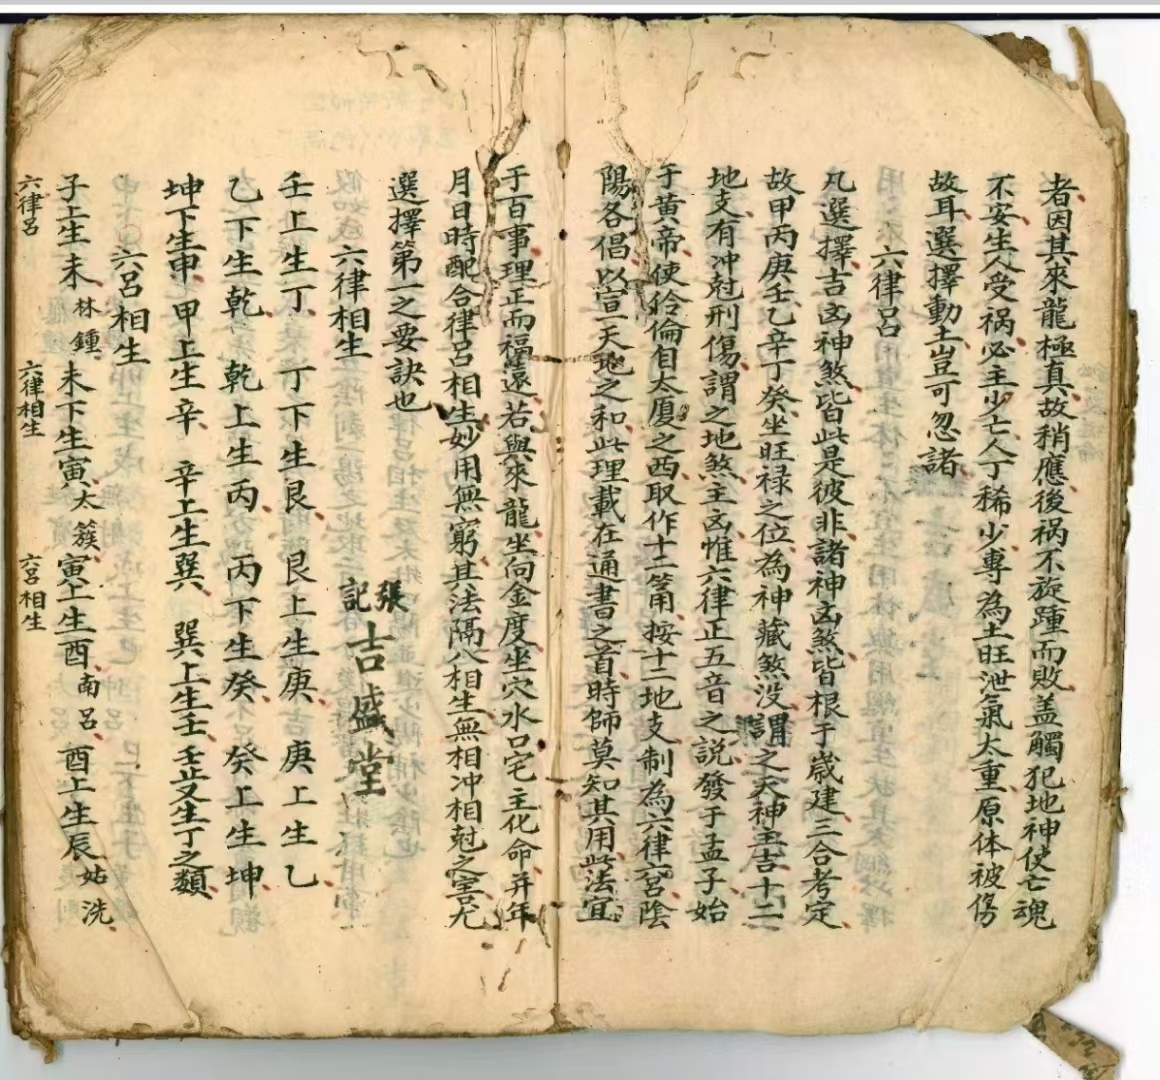 者因其來龍極真故稍應後祸不旋踵而敗盖觸犯地神使亡魂
不安生人受祸必主少亡人丁稀少專為土旺泄氣太重原体被傷
故耳選擇動土豈可忽諸
六律呂
凡選擇吉凶神煞皆此是彼非諸神凶煞皆根于歲建三合考定
故甲丙庚壬乙辛丁癸坐旺禄之位為神藏煞没謂之天神主吉十二
地支有冲尅刑傷謂之地煞主凶惟六律正五音之説發于孟子始
于黄帝使伶倫自太厦之西取作十二筩按十二地支制為六律六呂陰
陽各倡以宣天地之和此理載在通書之首時師莫知其用此法宜
于百事理正而福遠若與來龍坐向金度坐穴水口宅主化命并年
月日時配合律呂相生妙用無窮其法隔八相生無相冲相尅之害尤
選擇第一之要訣也
張記吉盛堂
六律相生
壬上生丁 丁下生艮 艮上生庚 庚上生乙
乙下生乾 乾上生丙 丙下生癸 癸上生坤
坤下生申 甲上生辛 辛上生巽 巽上生壬 壬又生丁之類
六呂相生
子上生未林鍾 未下生寅太簇 寅上生酉南呂 酉上生辰姑洗
六律呂
六律相生
六呂相生